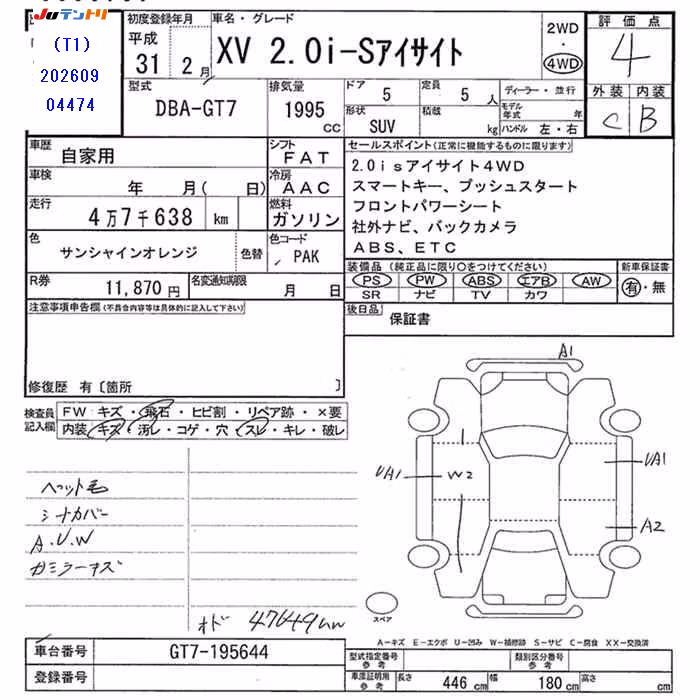 JUテントリ
(T1)
202609
04474
初度登録年月
平成
31 2月
車名・グレード
XV 2.0i-Sアイサイト
2WD
・
4WD
評価点
4
外装 内装
C B
型式
DBA-GT7
排気量
1995
CC
ドア
5
定員
5人
ディーラー・並行
形状
SUV
積載
kg
モデル年式 年
ハンドル 左・右
車歴
自家用
シフト
FAT
車検
年 月( 日)
冷房
AAC
走行
4万7千638 km
燃料
ガソリン
色
サンシャインオレンジ
色替
色コード
PAK
R券
11,870円
名変通知期限
月 日
セールスポイント(正常に機能するものに限ります)
2.0isアイサイト4WD
スマートキー、プッシュスタート
フロントパワーシート
社外ナビ、バックカメラ
ABS、ETC
装備品(純正品に限り○をつけてください)
PS PW ABS エアB AW
SR ナビ TV カワ
新車保証書
有・無
後日品
保証書
注意事項申告欄(不具合内容等は具体的に記入して下さい)
修復歴 有〔箇所 〕
検査員記入欄
FW キズ・飛石・ヒビ割・リペア跡・×要
内装 キズ・汚レ・コゲ・穴・スレ・キレ・破レ
ペット毛
シートカバー
A.U.W
ガラスキズ
オド 47649km
A1
UA1
W2
UA1
A2
スペア
A-キズ E-エクボ U-凹み W-補修跡 S-サビ C-腐食 XX-交換済
車台番号
GT7-195644
登録番号
型式指定番号
参考
類別区分番号
参考
車庫証明用
参考
長さ 446 cm
幅 180 cm
高さ cm